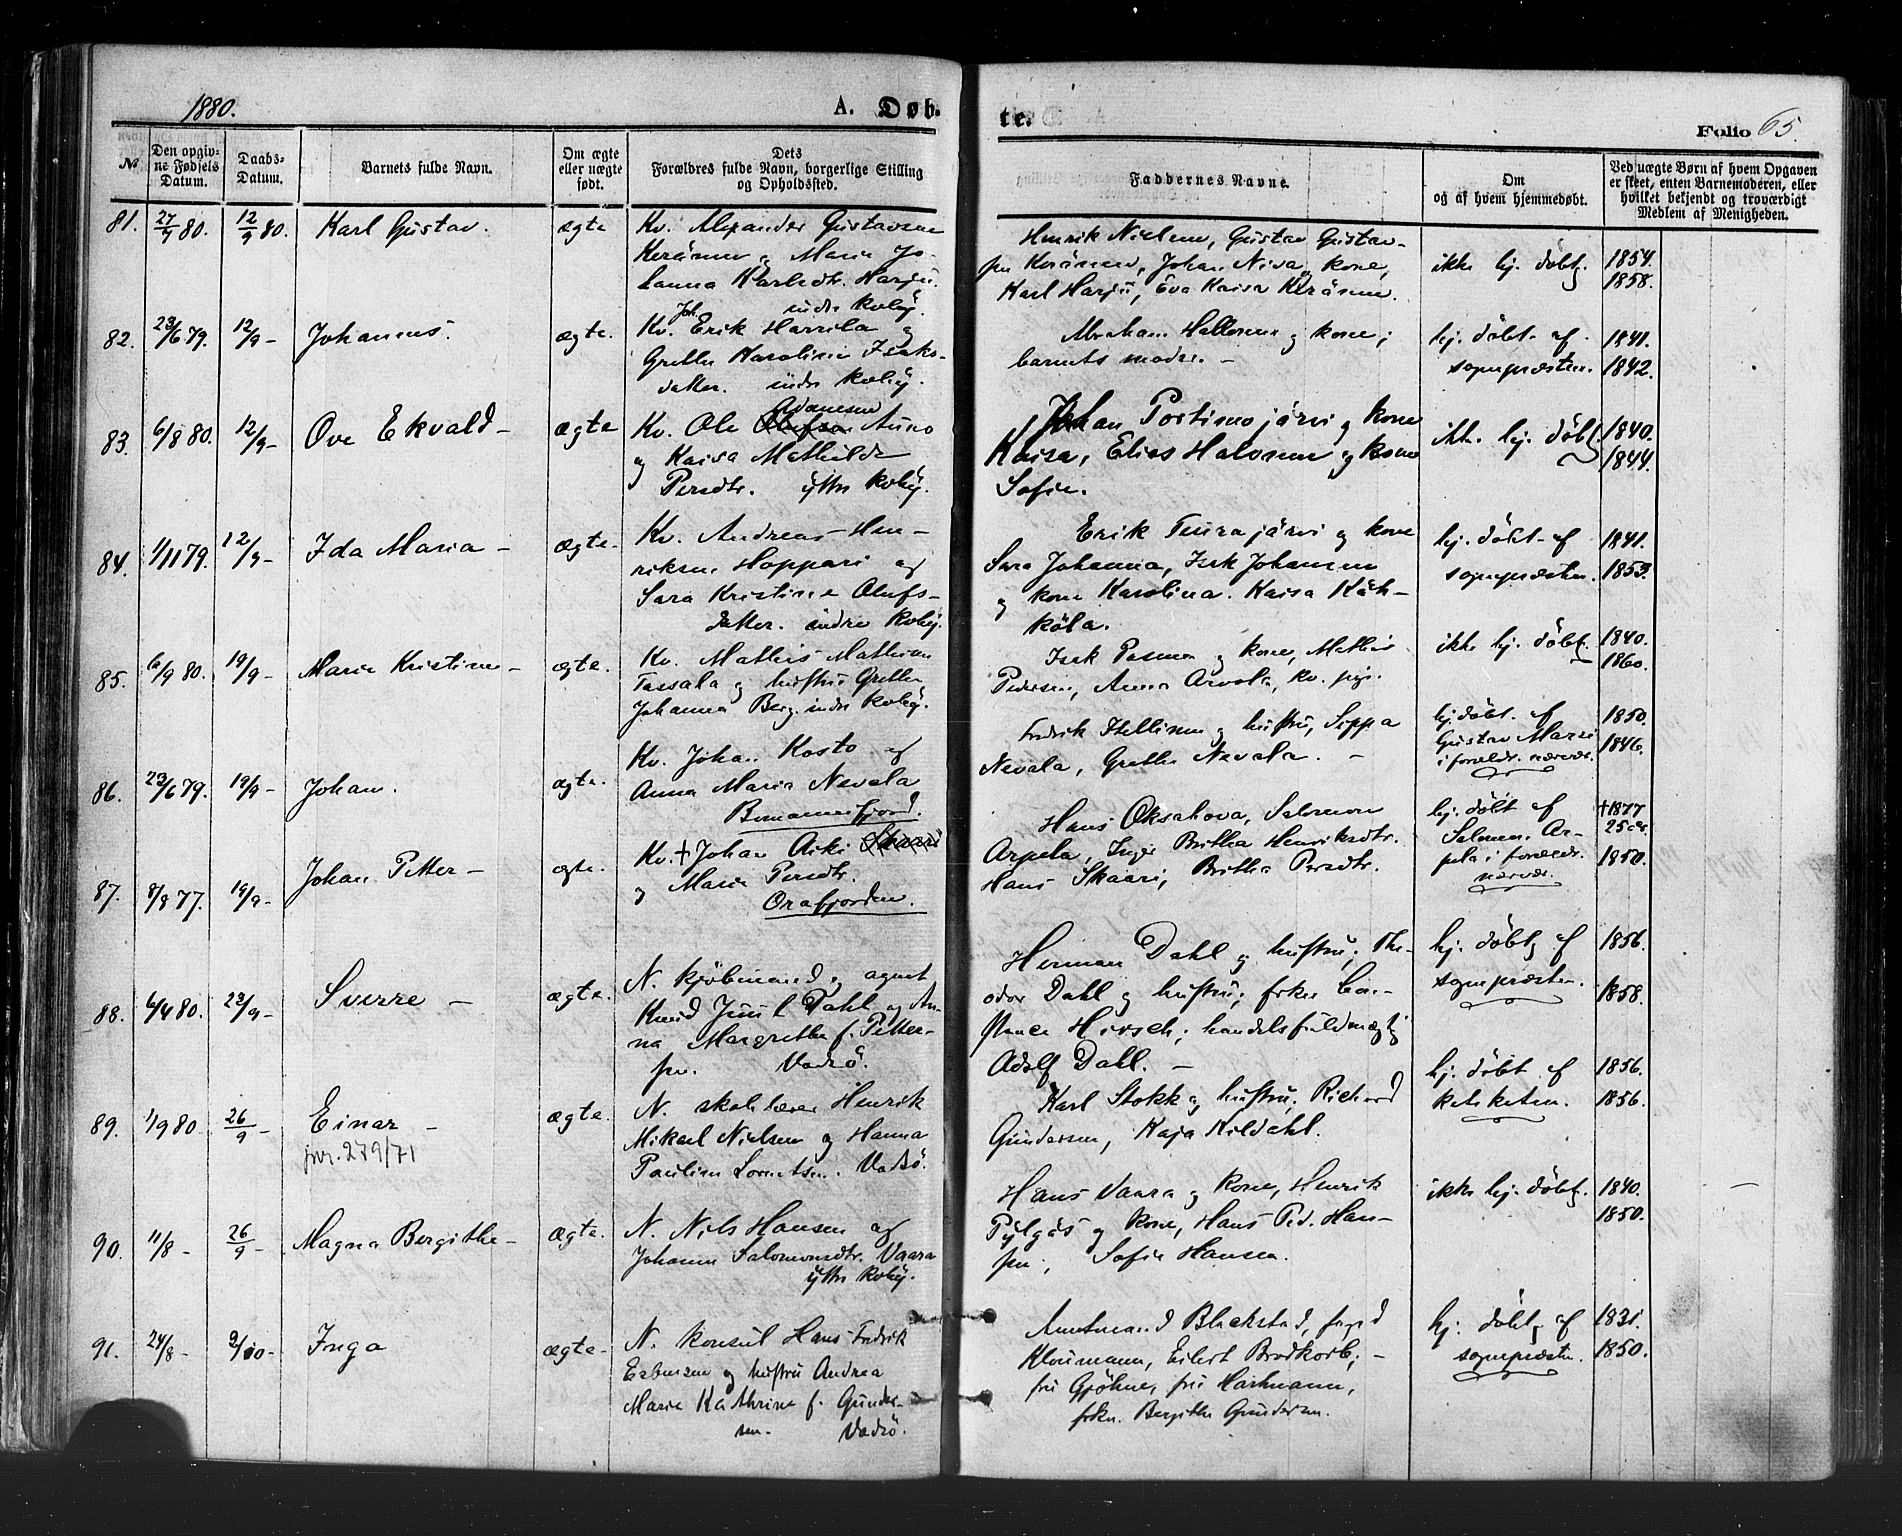 1880.
A. Døb-
te.
Folio 65.
№
Den opgiv-
ne Fødsels
Datum.
Daabs-
Datum.
Barnets fulde Navn.
Om ægte
eller uægte
født.
Dets
Forældres fulde Navn, borgerlige Stilling
og Opholdssted.
Faddernes Navne.
Om
og af hvem hjemmedøbt.
Ved uægte Børn af hvem Opgaven
er skeet, enten Barnemoderen, eller
hvilket bekjendt og troværdigt
Medlem af Menigheden.
81. 27/7 80. 12/9 80. Karl Gustav. ægte
Kv. Alexander Gustavsen
Keränen og Maria Jo-
hanna Karlsdtr. Harju.
indre Kvby.
Henrik Nielsen, Gustav Gustav-
sen Keränen, Johan Niva og kone,
Karl Harju, Eva Kaisa Keränen.
ikke hj. døbt.
1854.
1858.
82. 23/6 79. 12/9 - Johannes. ægte.
Kv. Joh. Erik Harrila og
Grethe Karoline Isaks-
datter. indre Kvby.
Abraham Hallonen og kone;
barnets moder. -
hj. døbt af
sognepræsten.
1841.
1842.
83. 6/8 80. 12/9 - Ove Ekvald - ægte
Adamsen
Kv. Ole Olufsen Auno
og Kaisa Mathilde
Persdtr. ytter Kvby.
Johan Portimojärvi og kone
Kaisa, Elias Halonen og kone
Sofie.
ikke hj. døbt.
1840.
1844.
84. 1/11 79. 12/9 - Ida Maria - ægte.
Kv. Andreas Hen-
riksen Hoppari og
Sara Kristine Olufs-
datter. indre Kvby.
Erik Teurajärvi og kone
Sara Johanna, Isak Johansen
og kone Karolina. Kaisa Käh-
köla.
hj. døbt af
sognepræsten.
1841.
1853.
85. 6/9 80. 19/9 - Maria Kristine - ægte.
Kv. Mathis Mathisen
Tassala og hustru Grethe
Johanna Berg. indre Kvby.
Isak Pasma og kone, Mathis
Pedersen, Anna Arvola, kv. pige.
ikke hj. døbt.
1840.
1860.
86. 23/6 79. 19/9 - Johan. ægte.
Kv. Johan Kosto og
Anna Maria Nevala
Bomannsfjord.
Fredrik Hellinen og hustru, Seppa
Nevala, Grethe Nevala. -
hj. døbt af
Gustav Marri
i forældr. nærvær.
1850.
1846.
87. 8/8 77. 19/9 - Johan Petter - ægte.
Kv. † Johan Aiki Skaari
og Maria Persdtr.
Orafjorden.
Hans Oksahova, Salomon
Arpela, Inger Britha Henriksdtr.
Hans Skaari, Britha Persdtr.
hj. døbt af
Salomon Ar-
pela i forældr.
nærvær.
†1877
25 aar.
1850.
88. 6/4 80. 23/9 - Sverre - ægte.
N. kjøbmand og agent
Knud Juul Dahl og An-
na Margrethe f. Petter-
sen. Vadsö.
Herman Dahl og hustru; The-
odor Dahl og hustru; frken Con-
stance Hirsch; handelsfuldmægtig
Adolf Dahl. -
hj. døbt af
sognepræsten.
1856.
1858.
89. 1/9 80. 26/9 - Einar - ægte.
jnr. 279/71
N. skolelærer Henrik
Mikael Nielsen og Hanna
Pauline Lorentsen. Vadsö.
Karl Stokk og hustru; Richard
Gundersen, Kaja Kildahl.
hj. døbt af
kateketen.
1856.
1856.
90. 11/8 - 26/9 - Magna Bergithe - ægte.
N. Nils Hansen og
Johanne Salomonsdtr. Vaara
ytter Kvby.
Hans Vaara og kone, Henrik
Pylgäs og kone, Hans Ped. Han-
sen, Sofie Hansen.
ikke hj. døbt.
1840.
1850.
91. 24/8 - 3/10 - Inga ægte -
N. konsul Hans Fredrik
Esbensen og hustru Andrea
Marie Kathrine f. Gunder-
sen. Vadsö.
Amtmand Blackstad, foged
Kloumann, Eilert Brodkorb; -
fru Gjöhne, fru Harkmann,
frkn. Bergithe Gundersen.
hj. døbt af
sognepræsten.
1831.
1850.